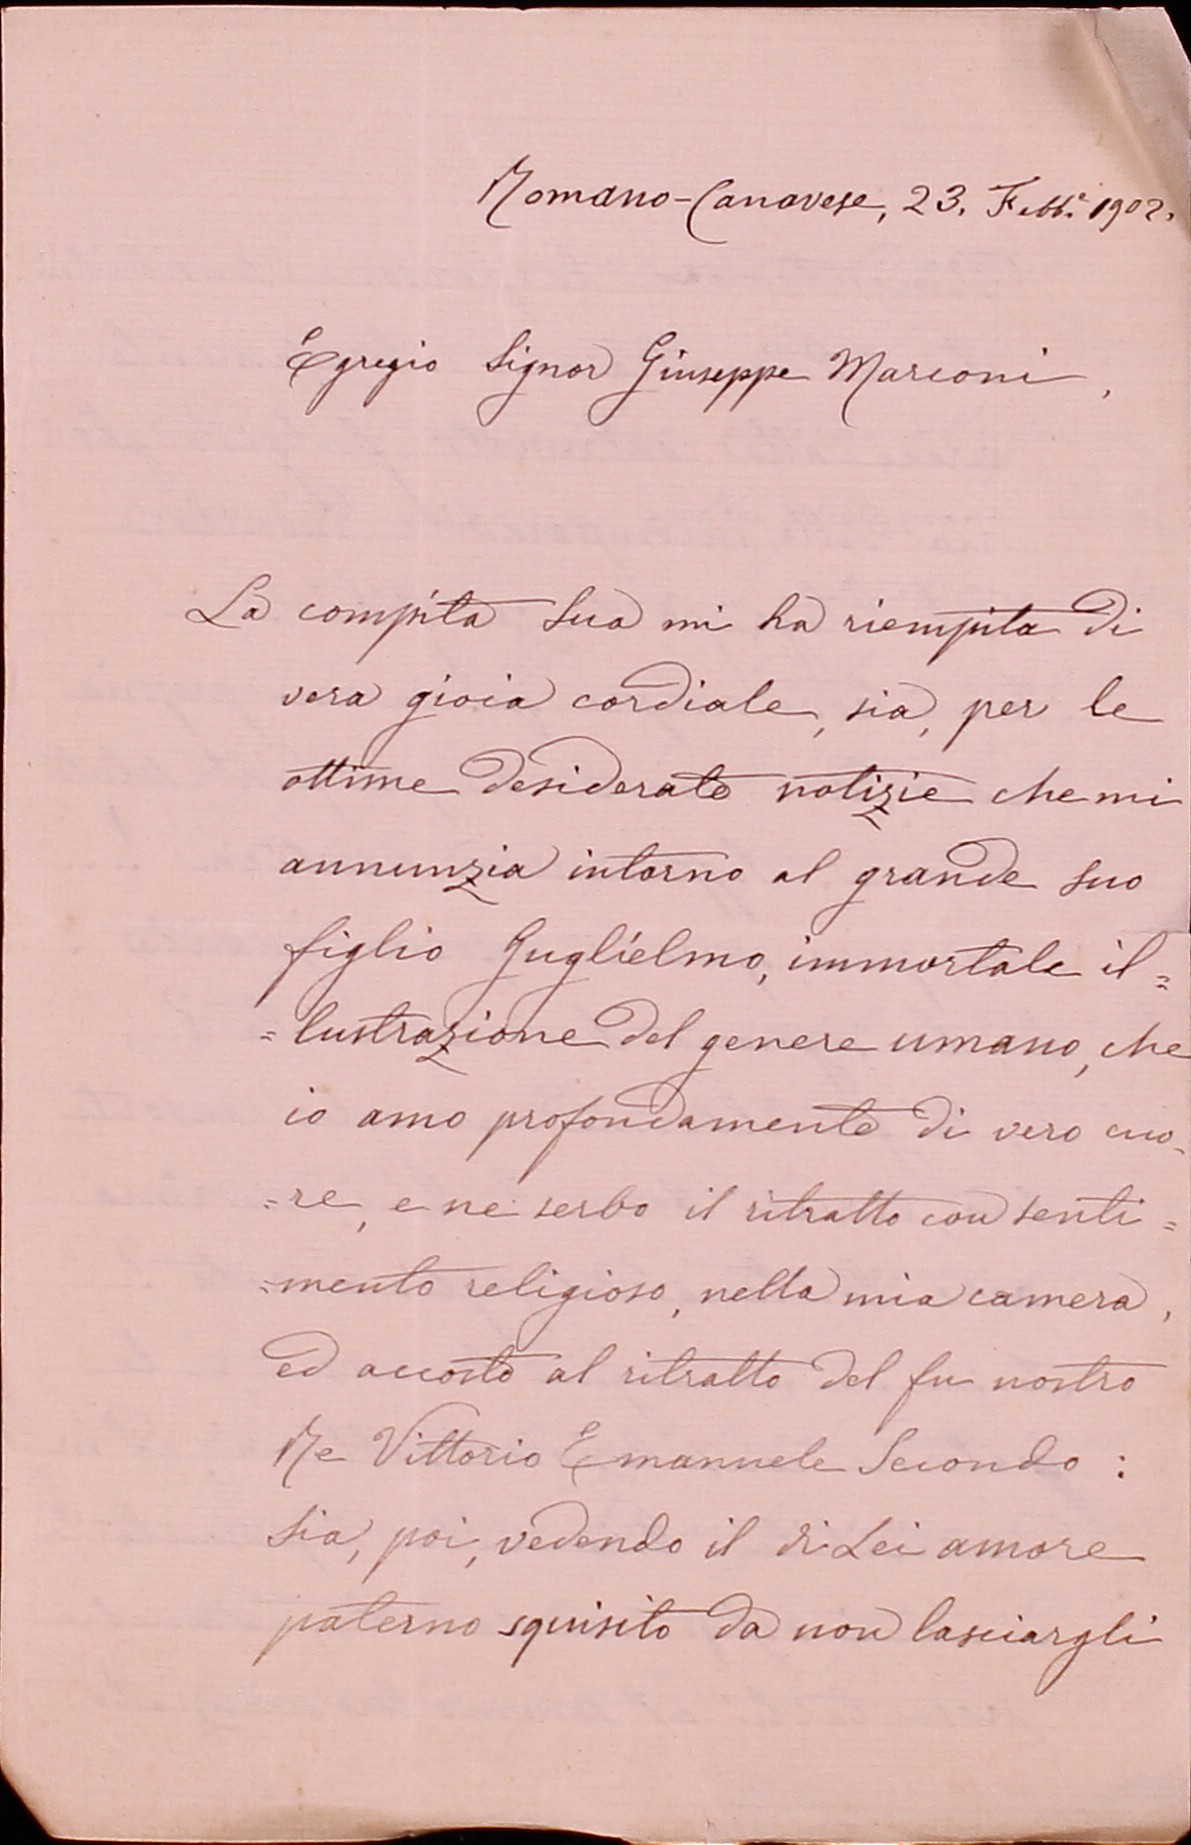 Romano-Canavese, 23. Febb.º 1902.
Egregio Signor Giuseppe Marconi,
La compíta Sua mi ha riempita di
vera gioia cordiale, sia, per le
ottime desiderate notizie che mi
annunzia intorno al grande suo
figlio Guglielmo, immortale il=
=lustrazione del genere umano, che
io amo profondamente di vero cuo-
=re, e ne serbo il ritratto con senti=
=mento religioso, nella mia camera,
ed accosto al ritratto del fu nostro
Re Vittorio Emanuele Secondo:
sia, poi, vedendo il di Lei amore
paterno squisito da non lasciargli